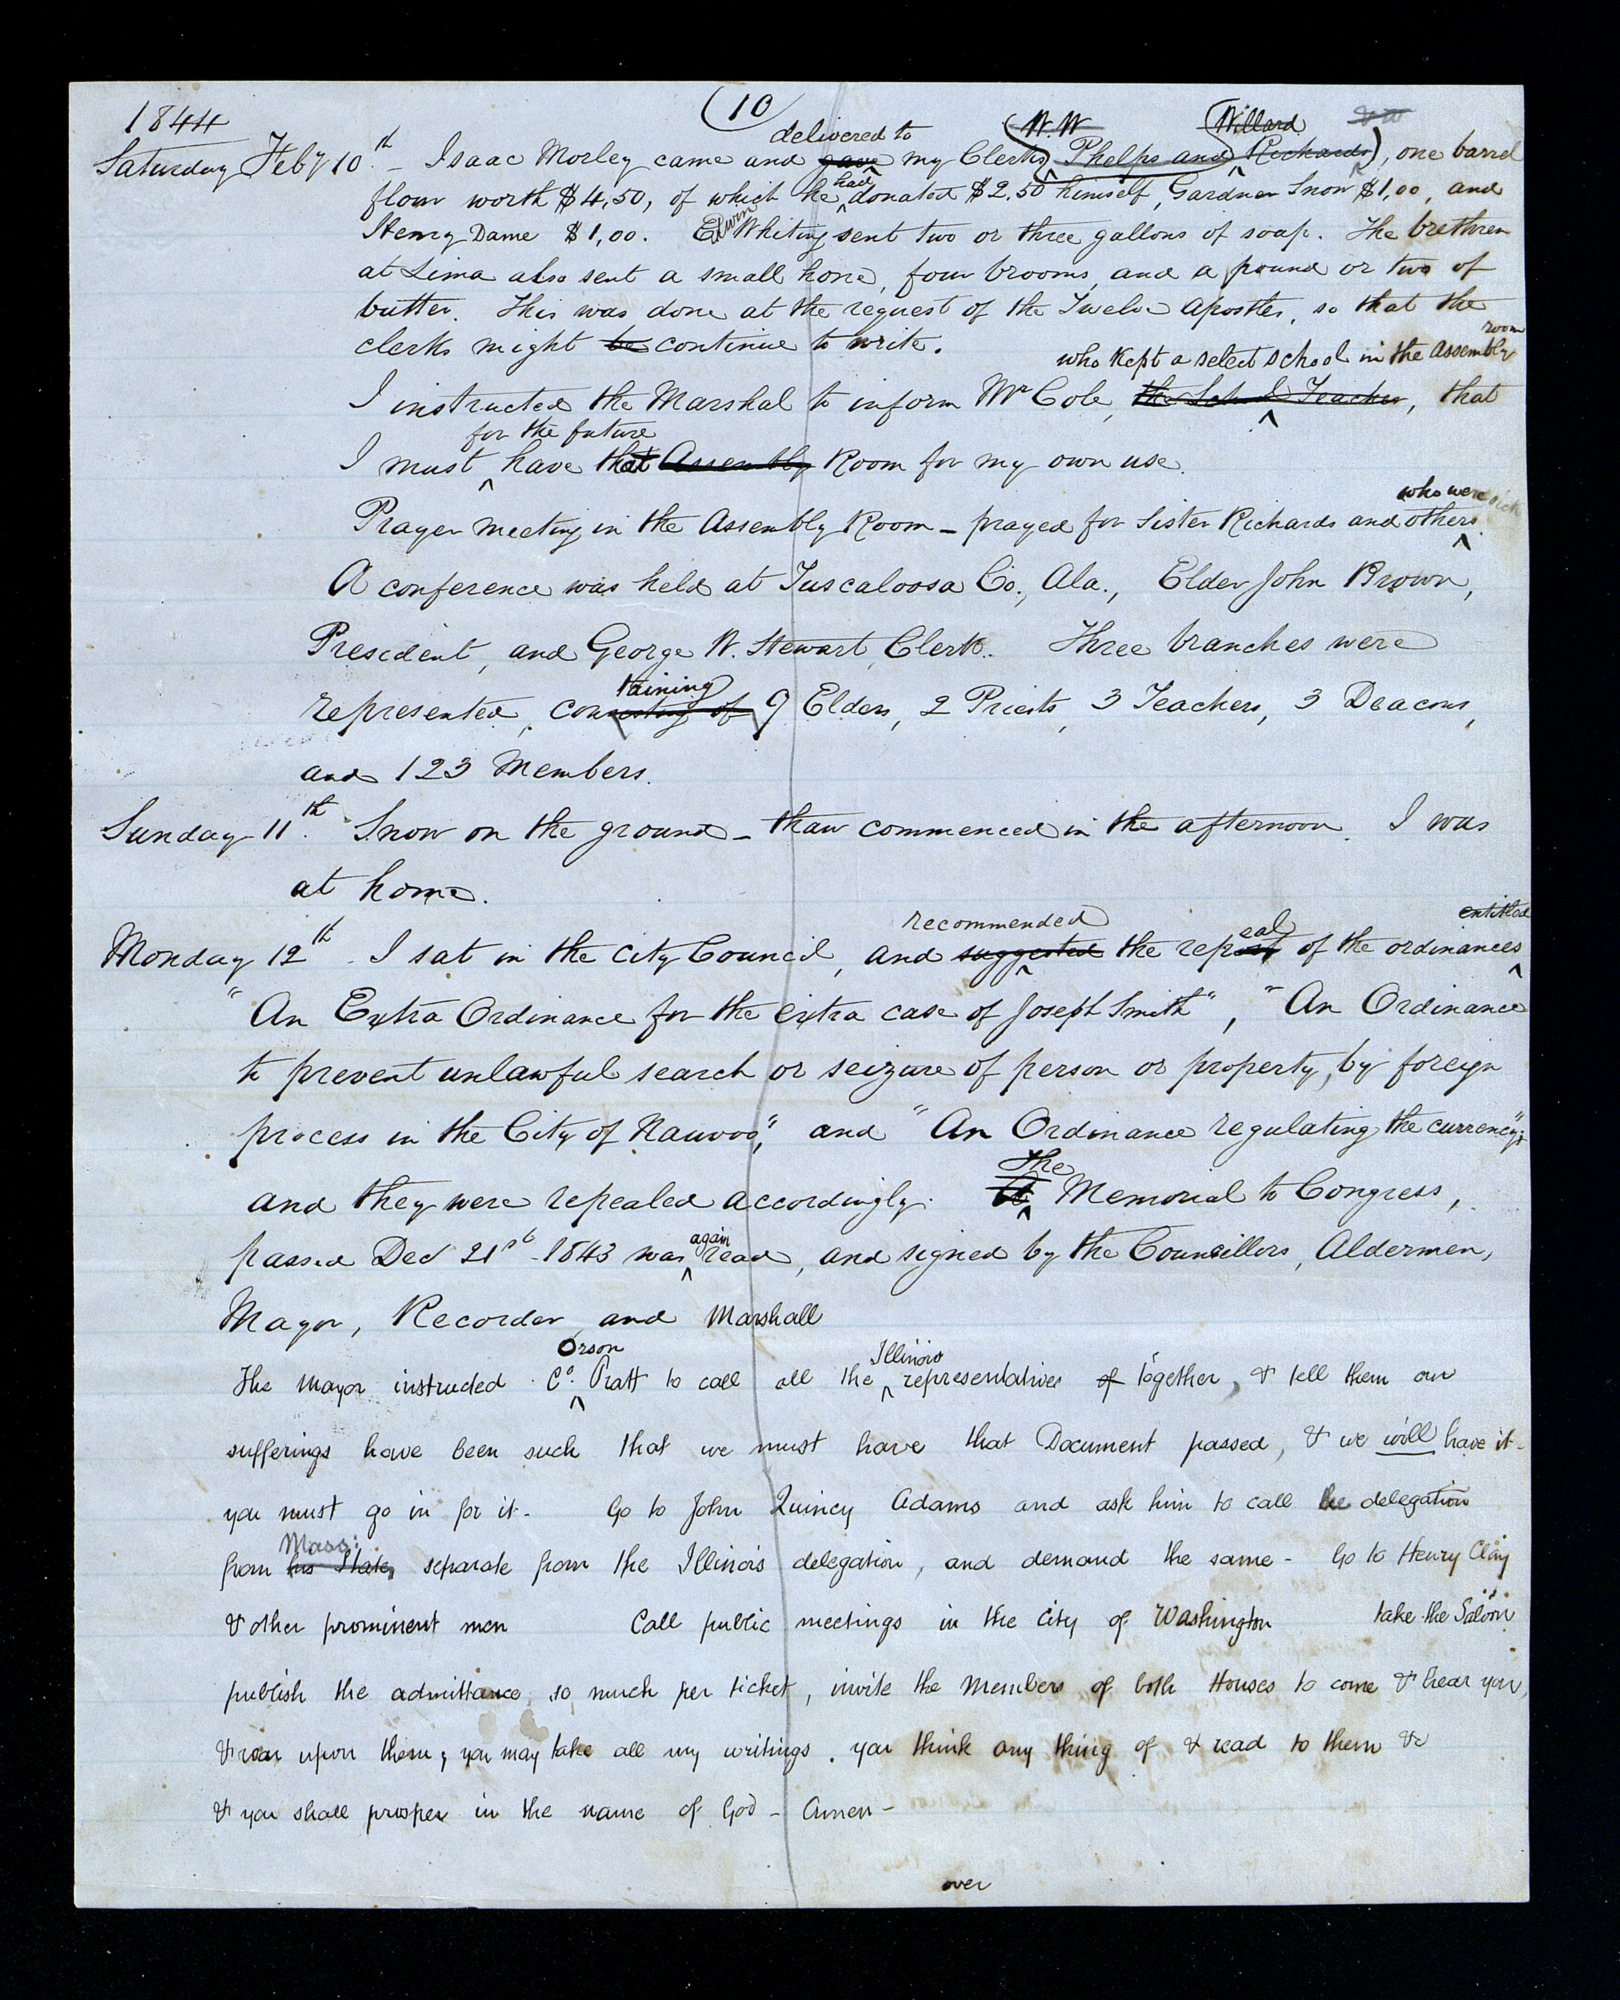 1844
(10)
delivered to W. W. Willard & W
Saturday Feby 10th – Isaac Morley came and gave my Clerks (Phelps and Richards), one barrel
flour worth $4,50, of which he had donated $2,50 himself, Gardner Snow $1,00, and
Henry Dame $1,00. Edwin Whiting sent two or three gallons of soap. The brethren
at Lima also sent a small hone, four brooms, and a pound or two of
butter. This was done at the request of the Twelve Apostles, so that the
clerks might be continue to write.
who kept a select school in the Assembly room
I instructed the Marshal to inform Mr Cole, the School Teacher, that
for the future
I must have that Assembly Room for my own use.
who were sick
Prayer meeting in the Assembly Room – prayed for Sister Richards and others.
A conference was held at Tuscaloosa Co., Ala., Elder John Brown,
President, and George W. Stewart, Clerk. Three branches were
taining
represented, consisting of 9 Elders, 2 Priests, 3 Teachers, 3 Deacons,
and 123 Members.
Sunday 11th. Snow on the ground – thaw commenced in the afternoon. I was
at home.
recommended eal entitled
Monday 12th. I sat in the City Council, and suggested the repeal of the ordinances
"An Extra Ordinance for the extra case of Joseph Smith", "An Ordinance
to prevent unlawful search or seizure of person or property, by foreign
process in the City of Nauvoo", and "An Ordinance regulating the currency";
The
and they were repealed accordingly. A Memorial to Congress,
passed Decr 21st 1843 was again read, and signed by the Councillors, Aldermen,
Mayor, Recorder, and Marshall
Orson Illinois
The mayor instructed Co. Pratt to call all the representatives of together, & tell them our
sufferings have been such that we must have that Document passed, & we will have it –
you must go in for it – Go to John Quincy Adams and ask him to call the delegation
Mass:
from his State, separate from the Illinois delegation, and demand the same – Go to Henry Clay
& other prominent men Call public meetings in the city of Washington take the Saloon
publish the admittance so much per ticket, invite the Members of both Houses to come & hear you,
& roar upon them, you may take all my writings. you think any thing of & read to them &c
& you shall prosper in the name of God – Amen –
over